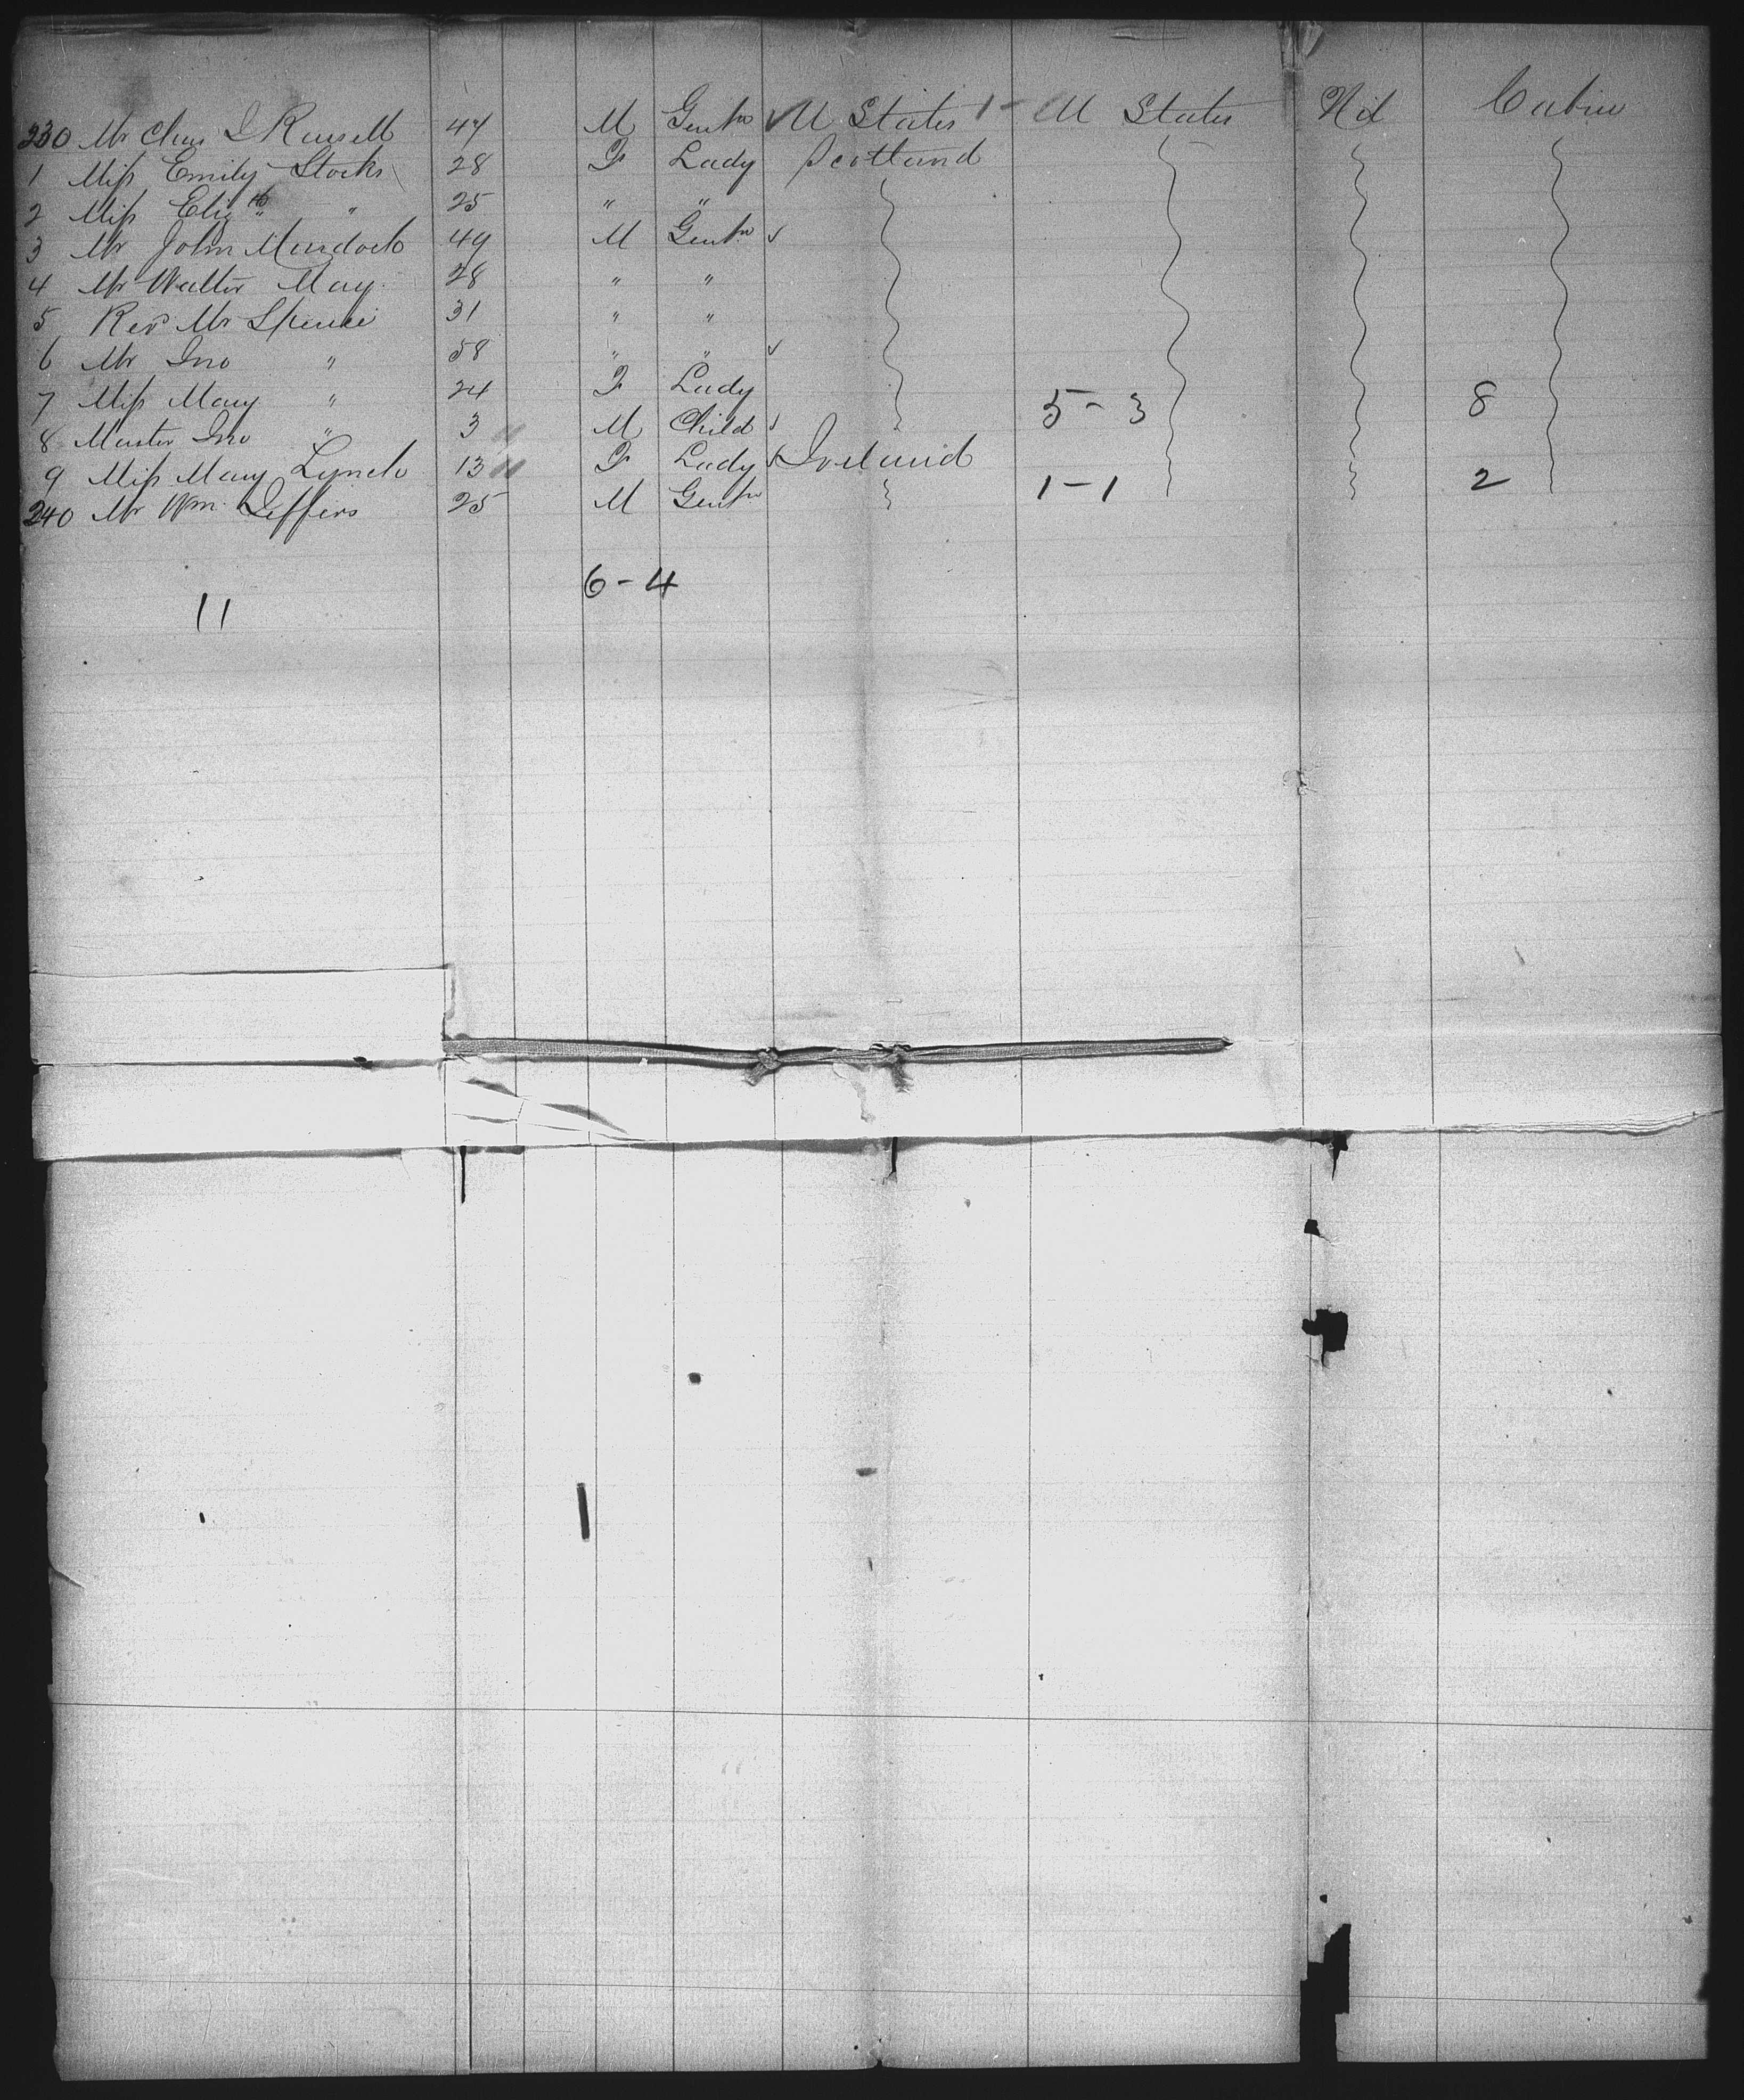 230 Mr Chas I Russell 47 M Gentn U States 1 - U States Nil Cabin
1 Miss Emily Stocks 28 F Lady Scotland
2 Miss Elizth " 25 " "
3 Mr John Murdoch 49 M Gentn
4 Mr Walter May 28 " "
5 Revd Mr Spence 31 " "
6 Mr Jno " 58 " "
7 Miss Mary " 24 F Lady 5-3 8
8 Master Jno " 3 M Child
9 Miss Mary Lynch 13 F Lady Ireland
240 Mr Wm. Jeffers 25 M Gentn 1-1 2
6-4
11